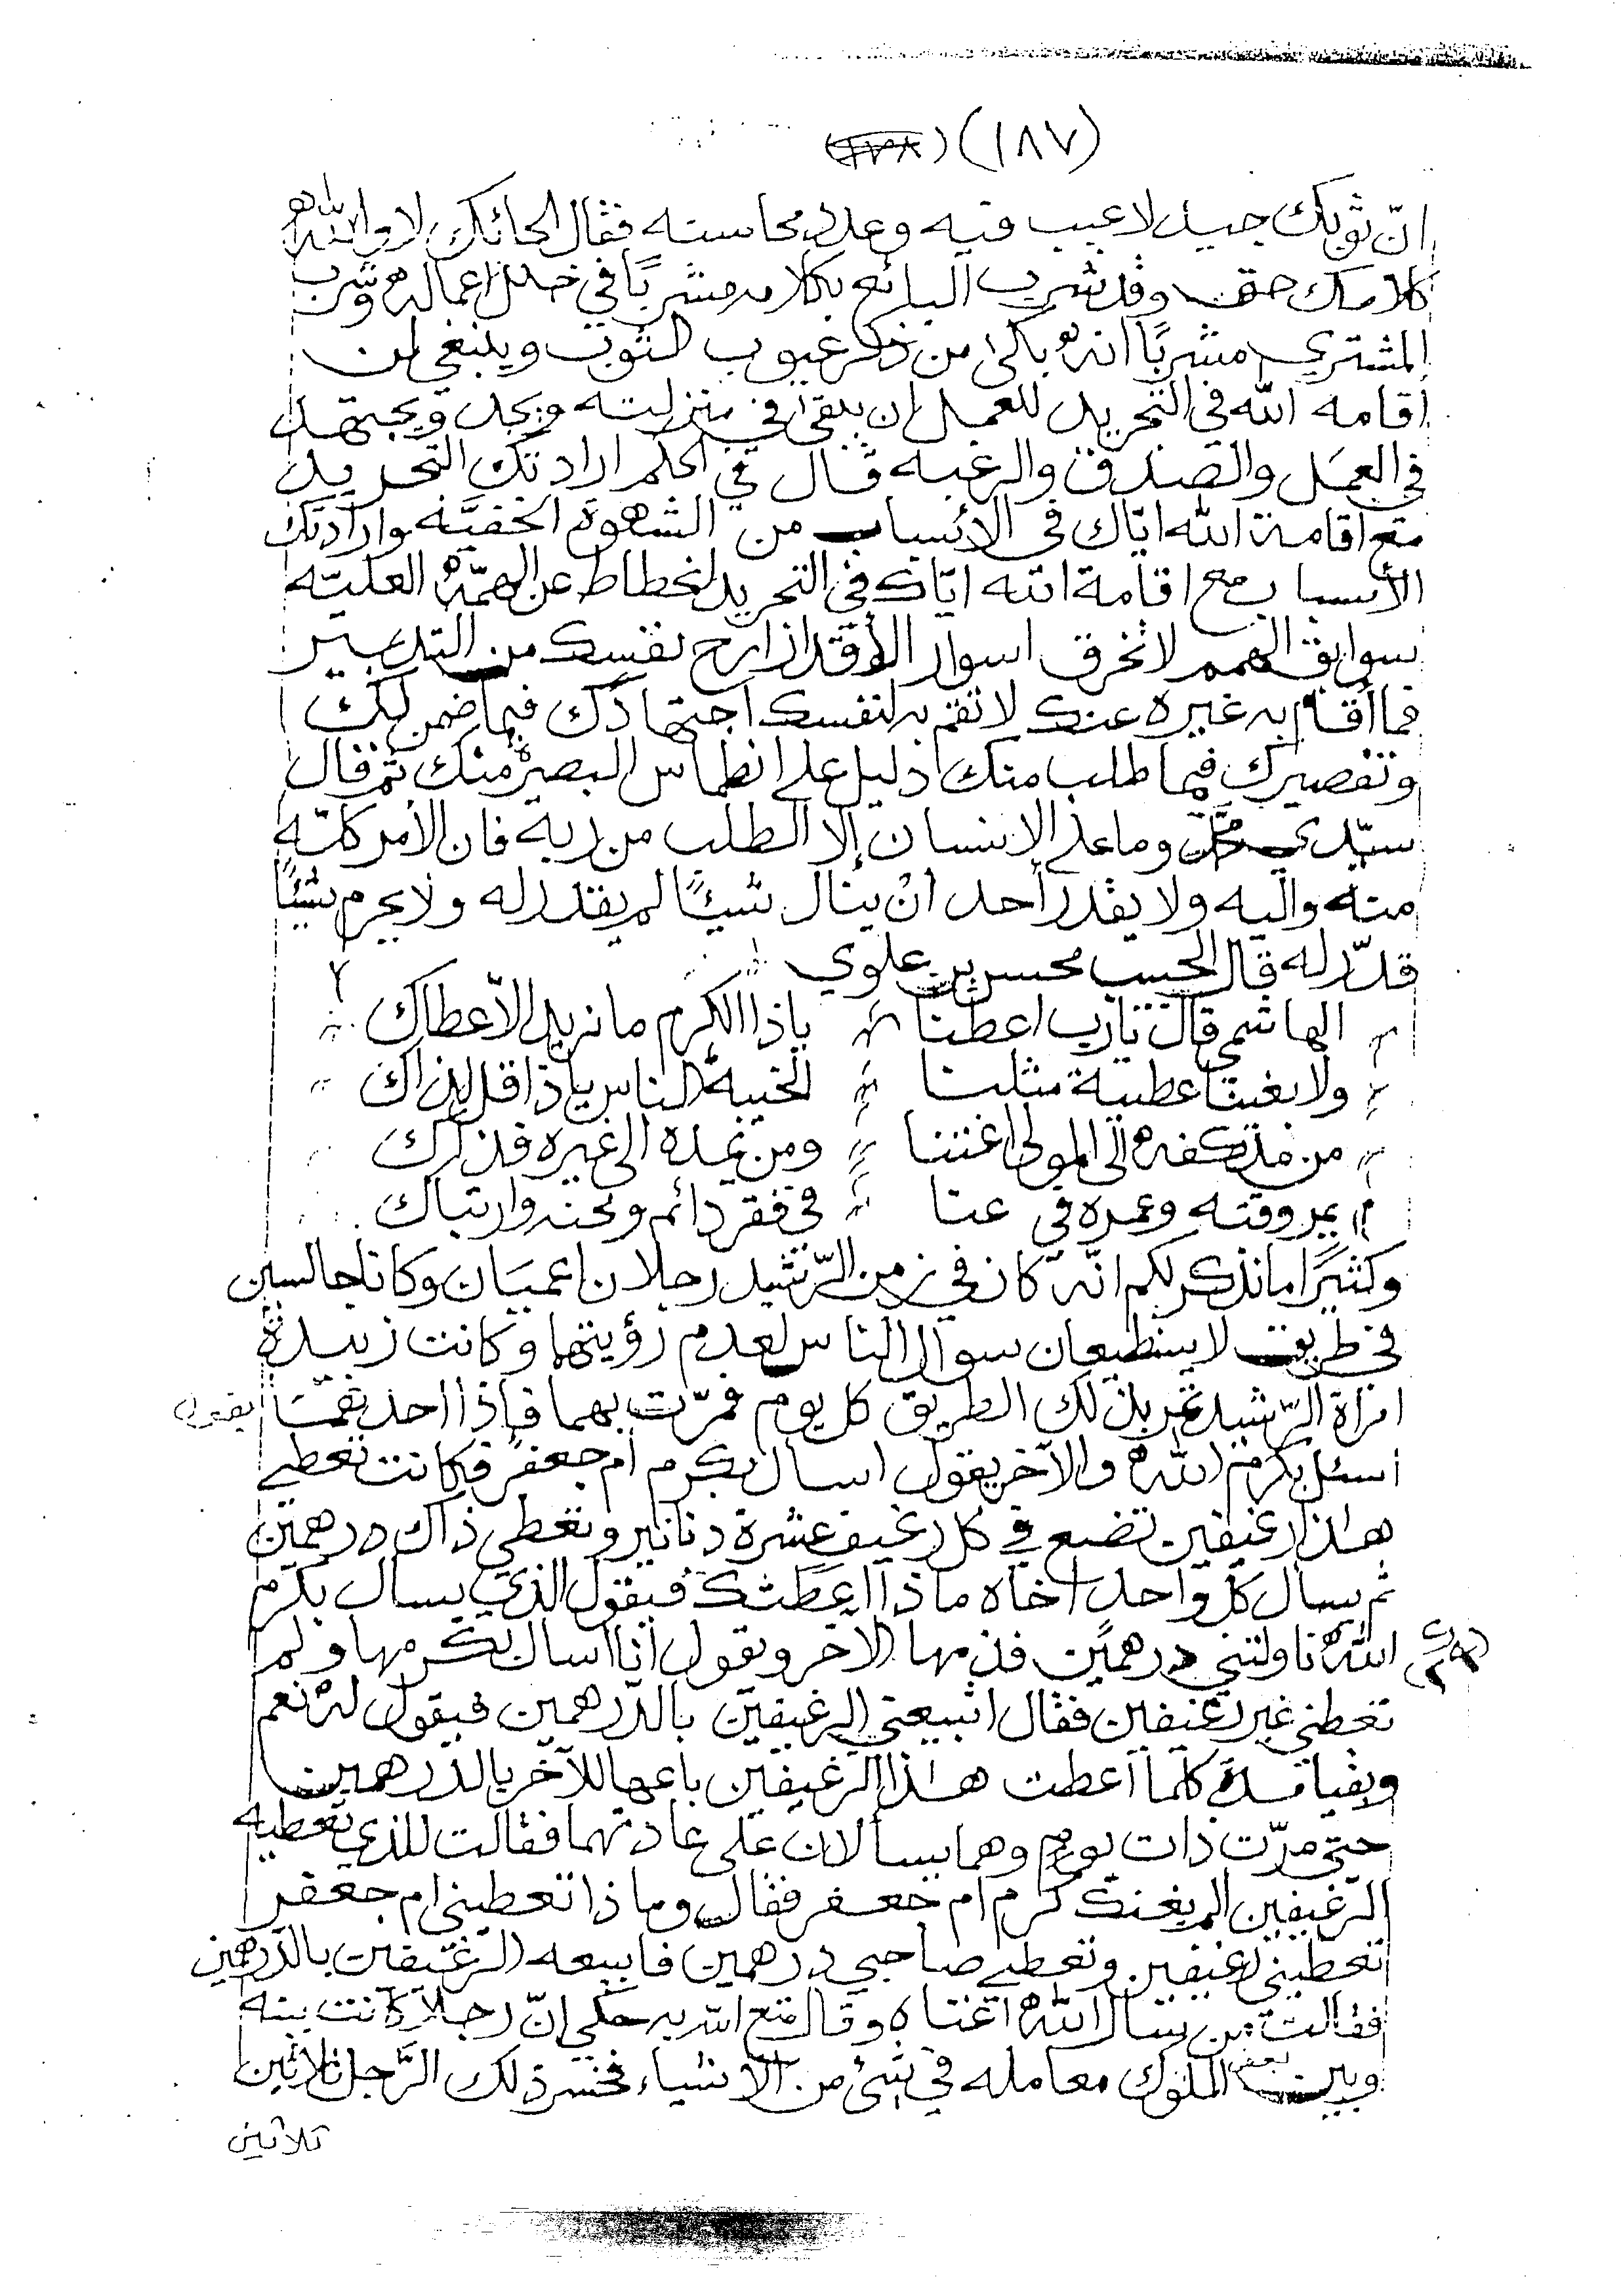 (١٨٧)
انّ ثوبك جيد لا عيب فيه وعدد محاسنه فقال الحائك لا والله
كلامك حق وقد شرب البائع بكلامه مشربًا في خلل اعماله وشرب
المشتري مشربًا انه بالى من ذكر عيوب الثوب وينبغي لمن
أقامه الله في التجريد للعمل ان يبقى في منزلته ويجد ويجتهد
في العمل والصدق والرغبه قال في الحكم ارادتك التجريد
مع اقامة الله اياك في الأسباب من الشهوة الخفيّه وارادتك
الأسباب مع اقامة الله ايّاك في التجريد انحطاط عن الهمّة العليّه
سوابق الهمم لا تخرق اسوار الأقدار ارح نفسك من التدبير
فما أقام به غيره عنك لا تقم به لنفسك اجتهادك فيما ضمن لك
وتقصيرك فيما طلب منك دليل على انطماس البصيرة منك ثم قال
سيّدي محمّد وما على الإنسان إلا الطلب من ربه فان الأمر كلّه
منه واليه ولا يقدر أحد أن ينال شيئًا لم يقدر له ولا يحرم شيئًا
قدّر له قال الحبيب محسن بن علوي
الهاشمي قال يارب اعطنا ياذا الكرم ما نريد الاّ عطاك
ولا بغينا عطية مثلنا الخيبة الناس ياذا قل لذاك
من مد كفه الى المولى اغتنا ومن يمده الى غيره فذاك
يمر وقته وعمره في عنا في فقر دائم ومحنه وارتباك
وكثيرًا ما نذكر لكم انّه كان في زمن الرّشيد رجلان اعميان وكانا جالسين
في طريق لا يستطيعان سوال الناس لعدم رؤيتهما وكانت زبيدة
امرأة الرّشيد تمر بذلك الطريق كل يوم فمرّت بهما فإذا احدهما يقول
اسئل بكرم الله والآخر يقول اسال بكرم أم جعفر فكانت تعطي
هذا رغيفين تضع في كل رغيف عشرة دنانير وتعطي ذاك درهمين
ثم يسال كل واحد اخاه ماذا اعطتك فيقول الذي يسال بكرم
الله ناولتني درهمين فذمها الآخر ويقول أنا اسال بكرمها ولم
تعطني غير رغيفين فقال اتبيعني الرغيفين بالدّرهمين فيقول له نعم
وبقيا مدة كلّما اعطت هذا الرغيفين باعها للآخر بالدرهمين
حتى مرّت ذات يوم وهما يسألان على عادتهما فقالت للذي تعطيه
الرغيفين الم يغنك كرم ام جعفر فقال وماذا تعطيني ام جعفر
تعطيني رغيفين وتعطي صاحبي درهمين فابيعه الرغيفين بالدّرهمين
فقالت من يسال الله اغناه وقال متع الله به حكي إنّ رجلا كانت بينه
وبين بعض الملوك معامله في شئ من الأشياء فخسر ذلك الرّجل ثلاثين
ثلاثين